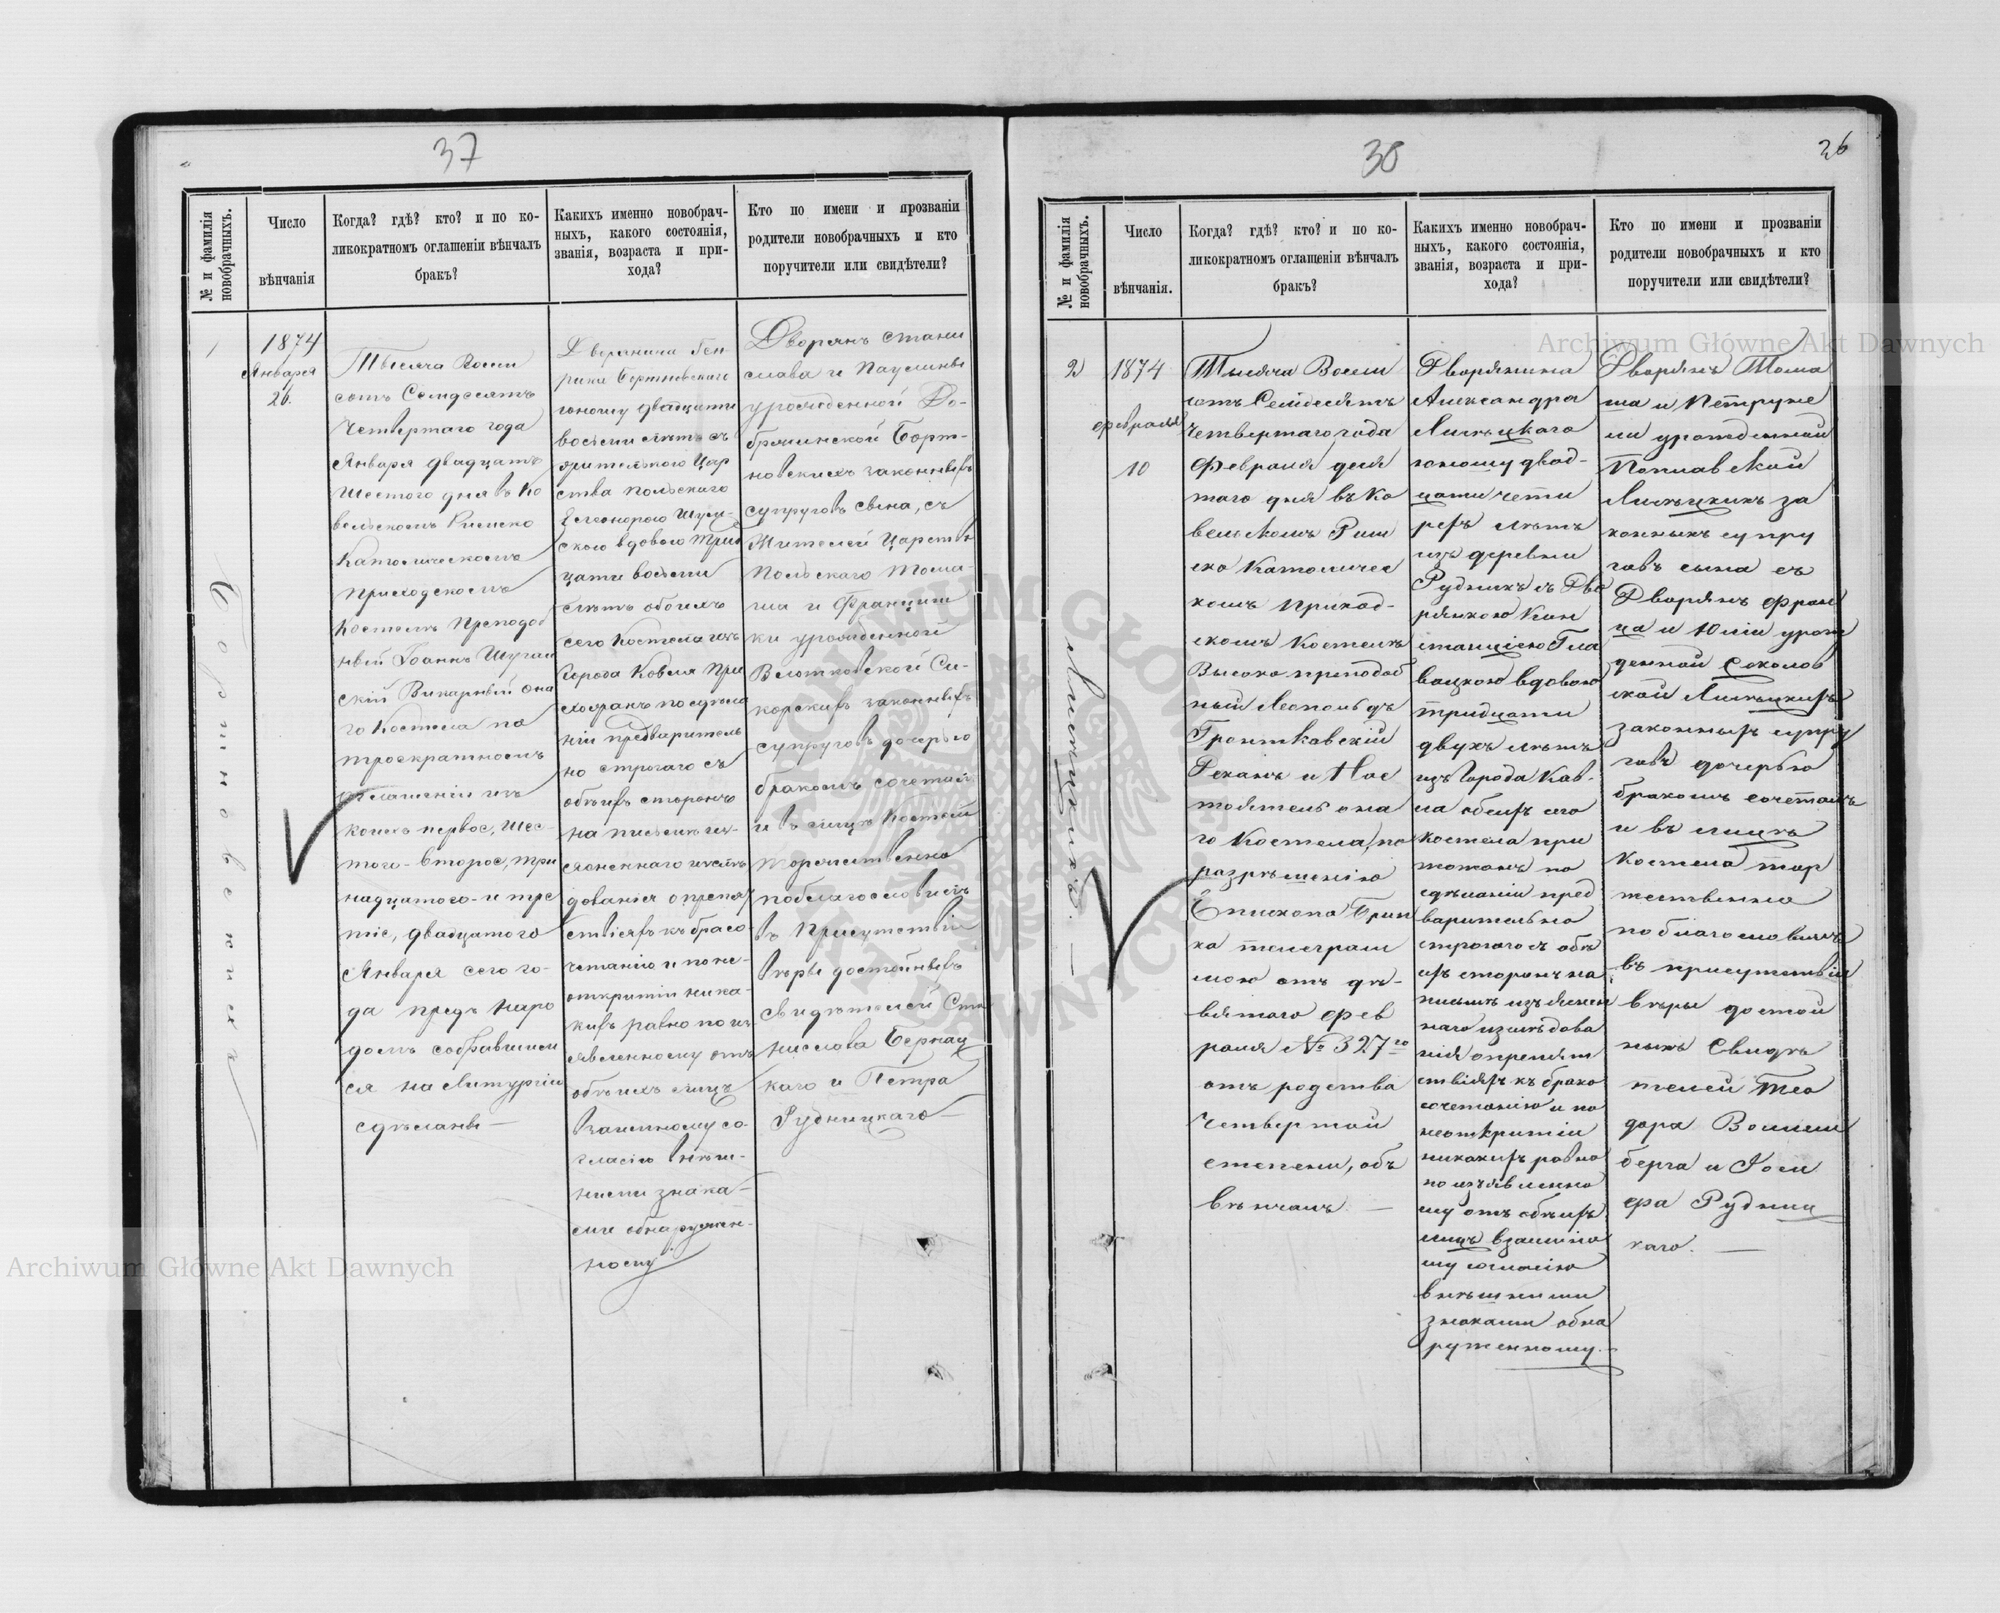 37
№ и фамилія
новобрачныхъ.
Число
вѣнчанія
Когда? гдѣ? кто? и по ко-
ликократномъ оглашеніи вѣнчалъ
бракъ?
Каких именно новобрач-
ныхъ, какого состоянія,
званія, возраста и при-
хода?
Кто по имени и прозванію
родители новобрачныхъ и кто
поручители или свидѣтели?
1
1874
Января
26.
Тысяча Восем
сотъ Семдесятъ
Четвертаго года
Января двадцать
Шестого дня въ Ко
вельскомъ Римско
Католическомъ
Приходскомъ
Костелѣ Преподоб
ный Іоаннъ
скій Викарный она
го Костела по
троекратномъ
оглашеніи изъ
коихъ первое, Шес-
того - второе, три
надцатого - и тре
тіе, двадцатого
Января сего го-
да предъ наро
домъ собравшим
ся на Литургіи
сдѣланы —
Дворянина Ген-
рика Бортновскаго
юношу двадцати
восьми лѣтъ съ
жительского Цар
ства польскаго
Елеонорою
вдовою Трид
цати восьми
лѣтъ обоихъ
сего Костела изъ
Города Ковля При
хожанъ по сдѣла
ніи предваритель
но строгаго съ
обѣихъ сторонъ
на письмѣ из-
дованія о препят
ствіяхъ къ брако-
четанію и по не-
открытіи ника-
кихъ равно по из
явленному отъ
обѣихъ лицъ
Взаимному со-
гласію Внѣш-
ними знака-
ми обнаружен-
ному
Дворянъ Стани
слава и Паулины
урожденной До-
бржинской Борт-
новскихъ законныхъ
супруговъ сына, съ
Жителей Царства
Польскаго Тома-
ша и Францишки
урожденной
Си-
корскихъ законныхъ
супруговъ дочерью
бракомъ сочеталъ
и въ лицѣ Костела
торжественно
поблагословилъ
въ Присутствіи
Вѣры достойныхъ
Свидѣтелей Ста
нислава Бернац
каго и Петра
Рудницкаго —
Бортновскихъ
38
26
№ и фамилія
новобрачныхъ.
Число
вѣнчанія.
Когда? гдѣ? кто? и по ко-
ликократномъ оглашеніи вѣнчалъ
бракъ?
Каких именно новобрач-
ныхъ, какого состоянія,
званія, возраста и при-
хода?
Кто по имени и прозванію
родители новобрачныхъ и кто
поручители или свидѣтели?
2
1874
февраля
10
Тысяча Восем
сотъ Семдесятъ
Четвертаго года
Февраля деся
таго дня въ Ко
вельскомъ Рим
ско Католичес
комъ Приход-
скомъ Костелѣ
Высокопреподоб
ный Леопольдъ
Гронтковскій
Деканъ и Нас
тоятель она
го Костела, по
разрѣшенію
Епископа Брин
ка телеграм
мою отъ де-
вятаго фев
раля № 327 го
отъ родства
Четвертой
степени, объ
вѣнчалъ. —
Дворянина
Александра
Лисѣцкого
юношу двад-
цати четы
рехъ лѣтъ
изъ деревни
Рудникъ съ Дво
рянкою Кон
станціею Гла
вацкою вдовою
тридцати
двухъ лѣтъ
изъ Города Ков-
ла обеихъ сего
костела при
хожанъ по
сдѣланіи пред
варительно
строгого съ обѣ
ихъ сторонъ на
письмѣ
наго изслѣдова
нія о препят
ствіяхъ къ брако
сочетанію и по
неоткрытіи
никакихъ равно
по изъявленно
му отъ обѣихъ
лицъ взаимно
му согласію
внѣшними
знаками обна
руженному. —
Дворянъ Тома
ша и Петруне
ли урожденной
Поплавской
Лисѣцкихъ за
конныхъ супру
говъ сына съ
Дворянъ Фран
ца и Юліи урож
денной Соколов
ской Лисѣцкихъ
законныхъ супру
говъ дочерью
бракомъ сочеталъ
и въ лицѣ
Костела тор
жественно
поблагословилъ
въ присутствіи
вѣры достой
ныхъ Свидѣ
телей Тео
дора Вомем
берга и Іози
фа Рудниц
каго. —
Лисѣцкихъ. —
Archiwum Główne Akt Dawnych
Archiwum Główne Akt Dawnych
ARCHIWUM GŁÓWNE AKT DAWNYCH